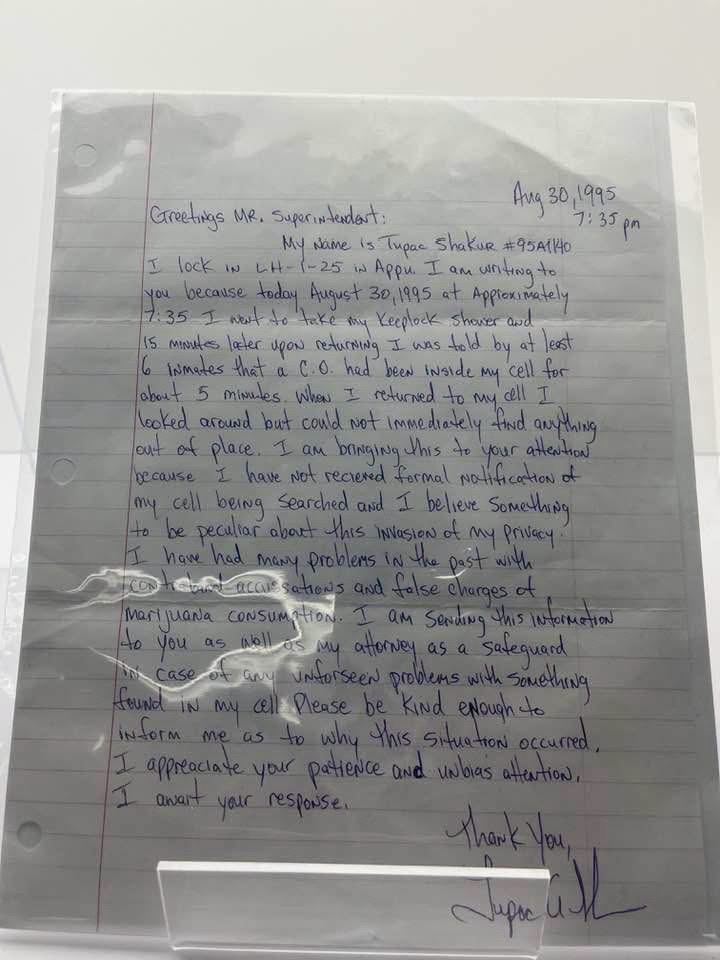 Aug 30, 1995
7:35 pm
Greetings MR. Superintendent:
My Name is Tupac Shakur #95A1140
I lock in LH-1-25 in Appu. I am writing to
you because today August 30, 1995 at Approximately
7:35 I went to take my Keeplock shower and
15 minutes later upon returning I was told by at least
6 inmates that a C.O. had been inside my cell for
about 5 minutes. When I returned to my cell I
looked around but could not immediately find anything
out of place. I am bringing this to your attention
because I have not recieved formal notification of
my cell being searched and I believe something
to be peculiar about this invasion of my privacy.
I have had many problems in the past with
contraband accussations and false charges of
marijuana consumption. I am sending this information
to you as well as my attorney as a safeguard
in case of any unforseen problems with something
found in my cell. Please be kind enough to
inform me as to why this situation occurred.
I appreaciate your patience and unbias attention.
I await your response.
Thank You,
Tupac